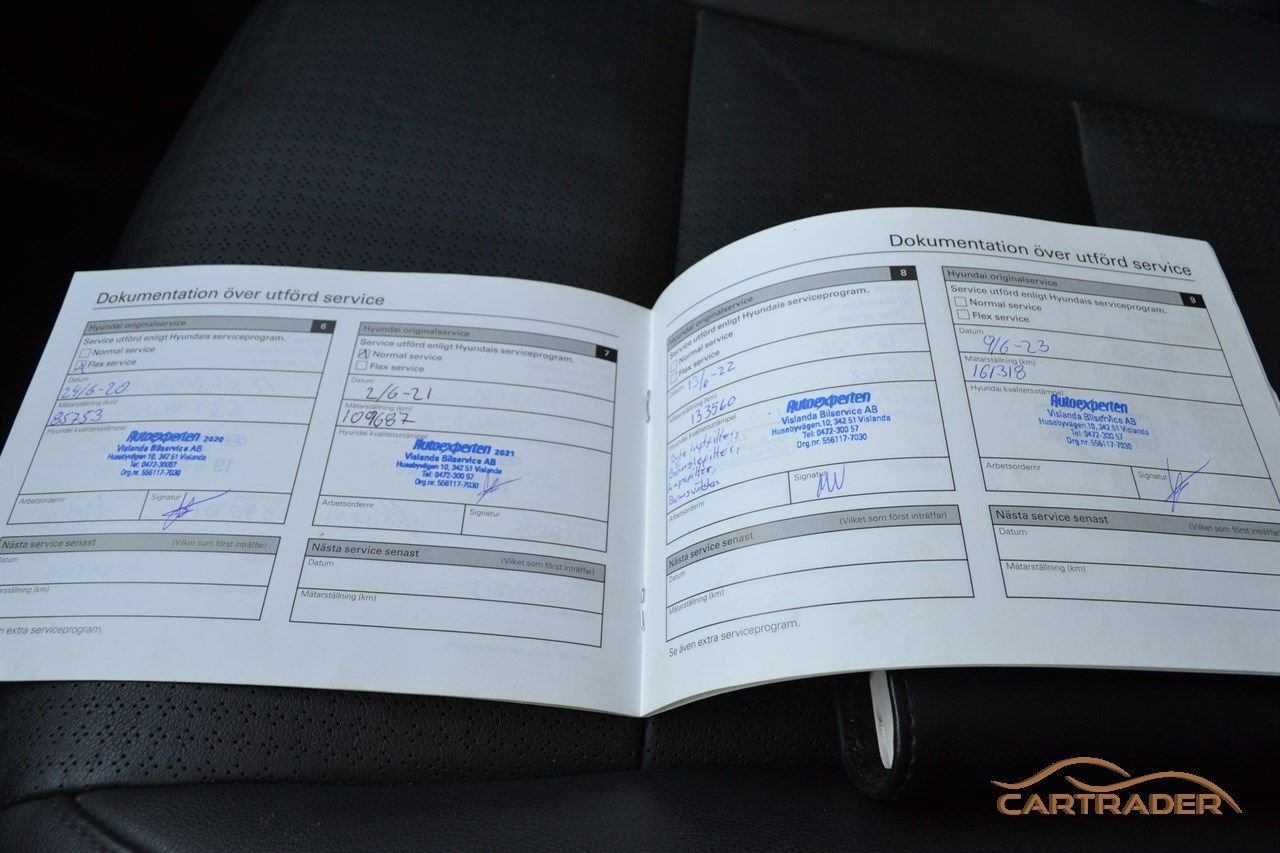 Dokumentation över utförd service
Hyundai originalservice 6
Service utförd enligt Hyundais serviceprogram.
Normal service
Flex service
Datum
24/6-20
Mätarställning (km)
85753
Hyundai kvalitetsstämpel
Autoexperten 2020
Vislanda Bilservice AB
Husebyvägen 10, 342 51 Vislanda
Tel: 0472-30057
Org.nr. 556117-7030
Arbetsordernr
Signatur
Nästa service senast (Vilket som först inträffar)
Datum
Mätarställning (km)
en extra serviceprogram.
Hyundai originalservice 7
Service utförd enligt Hyundais serviceprogram.
Normal service
Flex service
Datum
2/6-21
Mätarställning (km)
109687
Hyundai kvalitetsstämpel
Autoexperten 2021
Vislanda Bilservice AB
Husebyvägen 10, 342 51 Vislanda
Tel: 0472-300 57
Org.nr. 556117-7030
Arbetsordernr
Signatur
Nästa service senast (Vilket som först inträffar)
Datum
Mätarställning (km)
Dokumentation över utförd service
Hyundai originalservice 8
Service utförd enligt Hyundais serviceprogram.
Normal service
Flex service
Datum
13/6-22
Mätarställning (km)
133560
Hyundai kvalitetsstämpel
Byte luftfilter,
Bränslefilter,
Kupefilter,
Bromsvätska
Autoexperten
Vislanda Bilservice AB
Husebyvägen 10, 342 51 Vislanda
Tel: 0472-300 57
Org.nr. 556117-7030
Arbetsordernr
Signatur
Nästa service senast (Vilket som först inträffar)
Datum
Mätarställning (km)
Se även extra serviceprogram.
Hyundai originalservice 9
Service utförd enligt Hyundais serviceprogram.
Normal service
Flex service
Datum
9/6-23
Mätarställning (km)
161318
Hyundai kvalitetsstämpel
Autoexperten
Vislanda Bilservice AB
Husebyvägen 10, 342 51 Vislanda
Tel: 0472-300 57
Org.nr. 556117-7030
Arbetsordernr
Signatur
Nästa service senast (Vilket som först inträffar)
Datum
Mätarställning (km)
CARTRADER